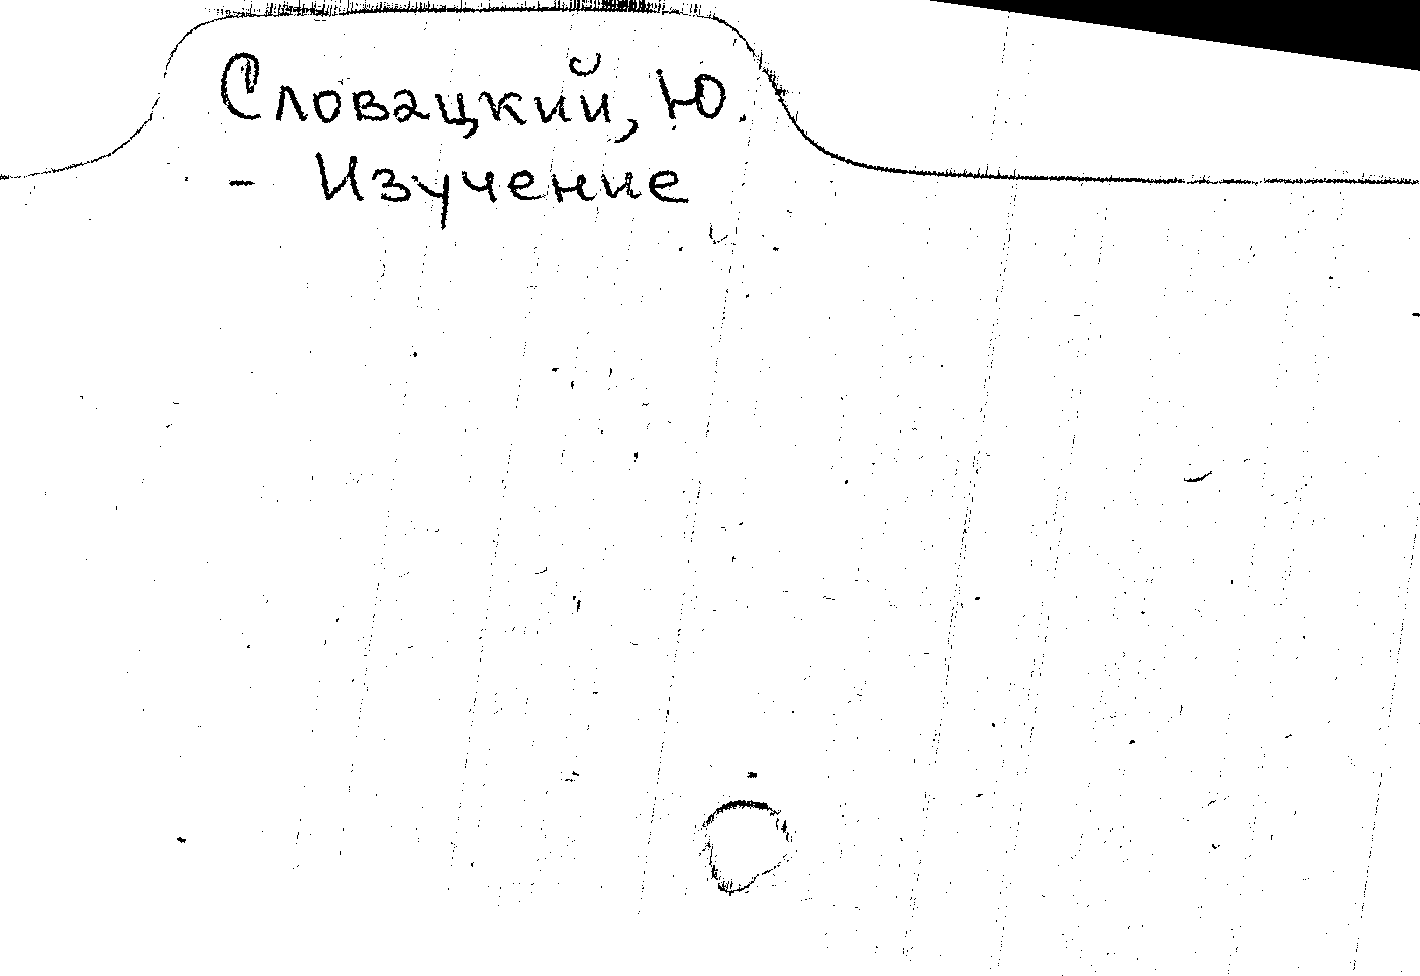 Словацкий, Ю.
- Изучение